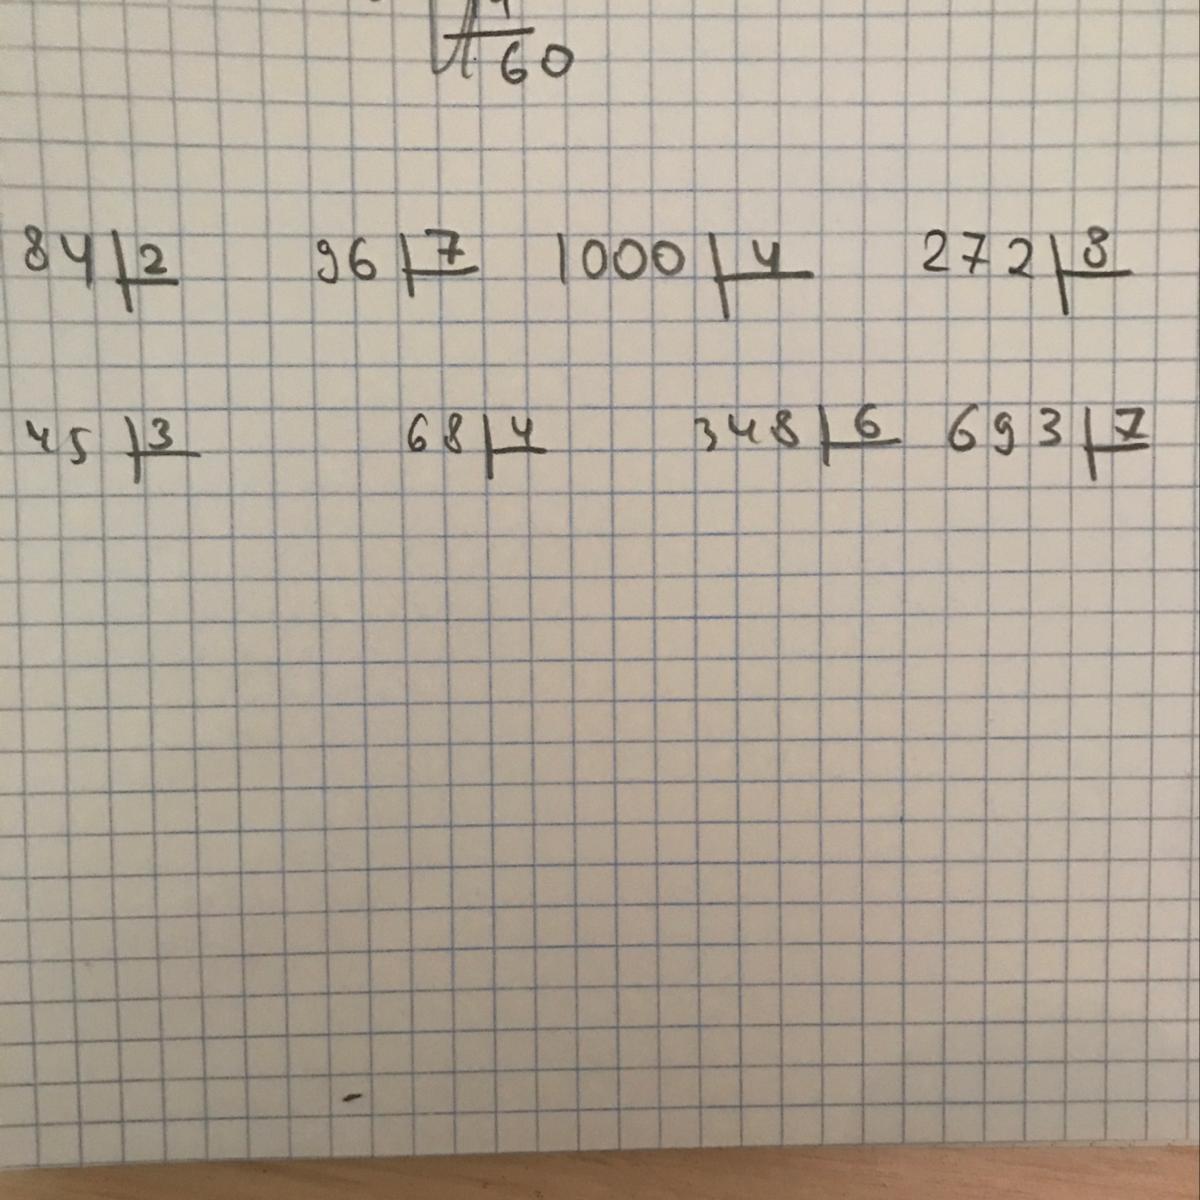 60
84 2 96 7 1000 4 272 8
45 3 68 4 348 6 693 7